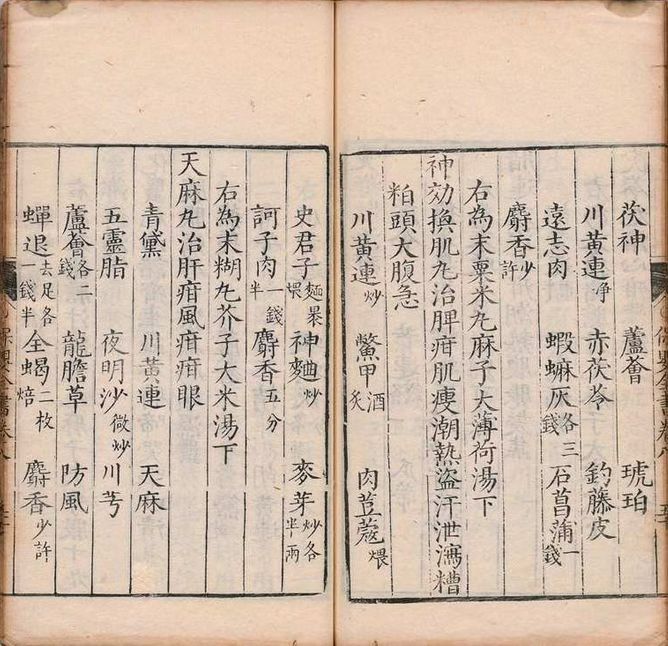 茯神 蘆薈 琥珀
川黃連淨 赤茯苓 鈎藤皮
遠志肉 蝦蟆灰各三錢 石菖蒲一錢
麝香少許
右為末粟米丸麻子大薄荷湯下
神効換肌丸治脾疳肌瘦潮熱盜汗泄瀉糟
粕頭大腹急
川黃連炒 鱉甲酒炙 肉荳蔲煨
史君子麵果煨 神麯炒 麥芽炒各半兩
訶子肉一錢半 麝香五分
右為末糊丸芥子大米湯下
天麻丸治肝疳風疳疳眼
青黛 川黃連 天麻
五靈脂 夜明沙微炒 川芎
蘆薈各二錢 龍膽草 防風
蟬退去足各一錢半 全蝎二枚焙 麝香少許